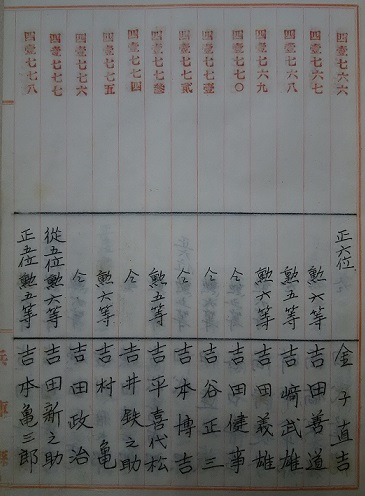 四壹七六六 正六位 金子直吉
四壹七六七 勲六等 吉田善道
四壹七六八 勲五等 吉﨑武雄
四壹七六九 勲六等 吉田義雄
四壹七七〇 仝 吉田健
四壹七七壹 仝 吉谷正三
四壹七七貳 仝 吉本博吉
四壹七七參 勲五等 吉平喜代松
四壹七七四 仝 吉井鉄之助
四壹七七五 勲六等 吉村亀
四壹七七六 仝 吉田政治
四壹七七七 從五位勲六等 吉田新之助
四壹七七八 正五位勲五等 吉本亀三郎
兵庫縣